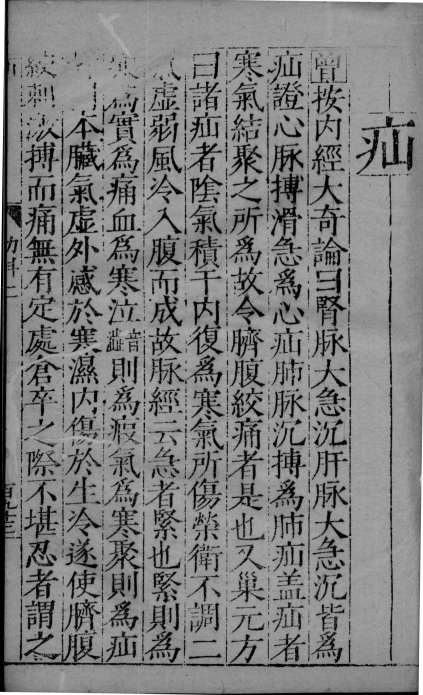 疝
嘗按内經大奇論曰腎脉大急沉肝脉大急沉皆為
疝證心脉搏滑急為心疝肺脉沉搏為肺疝盖疝者
寒氣結聚之所為故令臍腹絞痛者是也又巢元方
曰諸疝者陰氣積于内復為寒氣所傷榮衛不調二
氣虚弱風冷入腹而成故脉經云急者緊也緊則為
寒為實為痛血為寒泣音澁則為瘕氣為寒聚則為疝
本臟氣虚外感於寒濕内傷於生冷遂使臍腹
絞刺 搏而痛無有定處倉卒之際不堪忍者謂之
幼科二